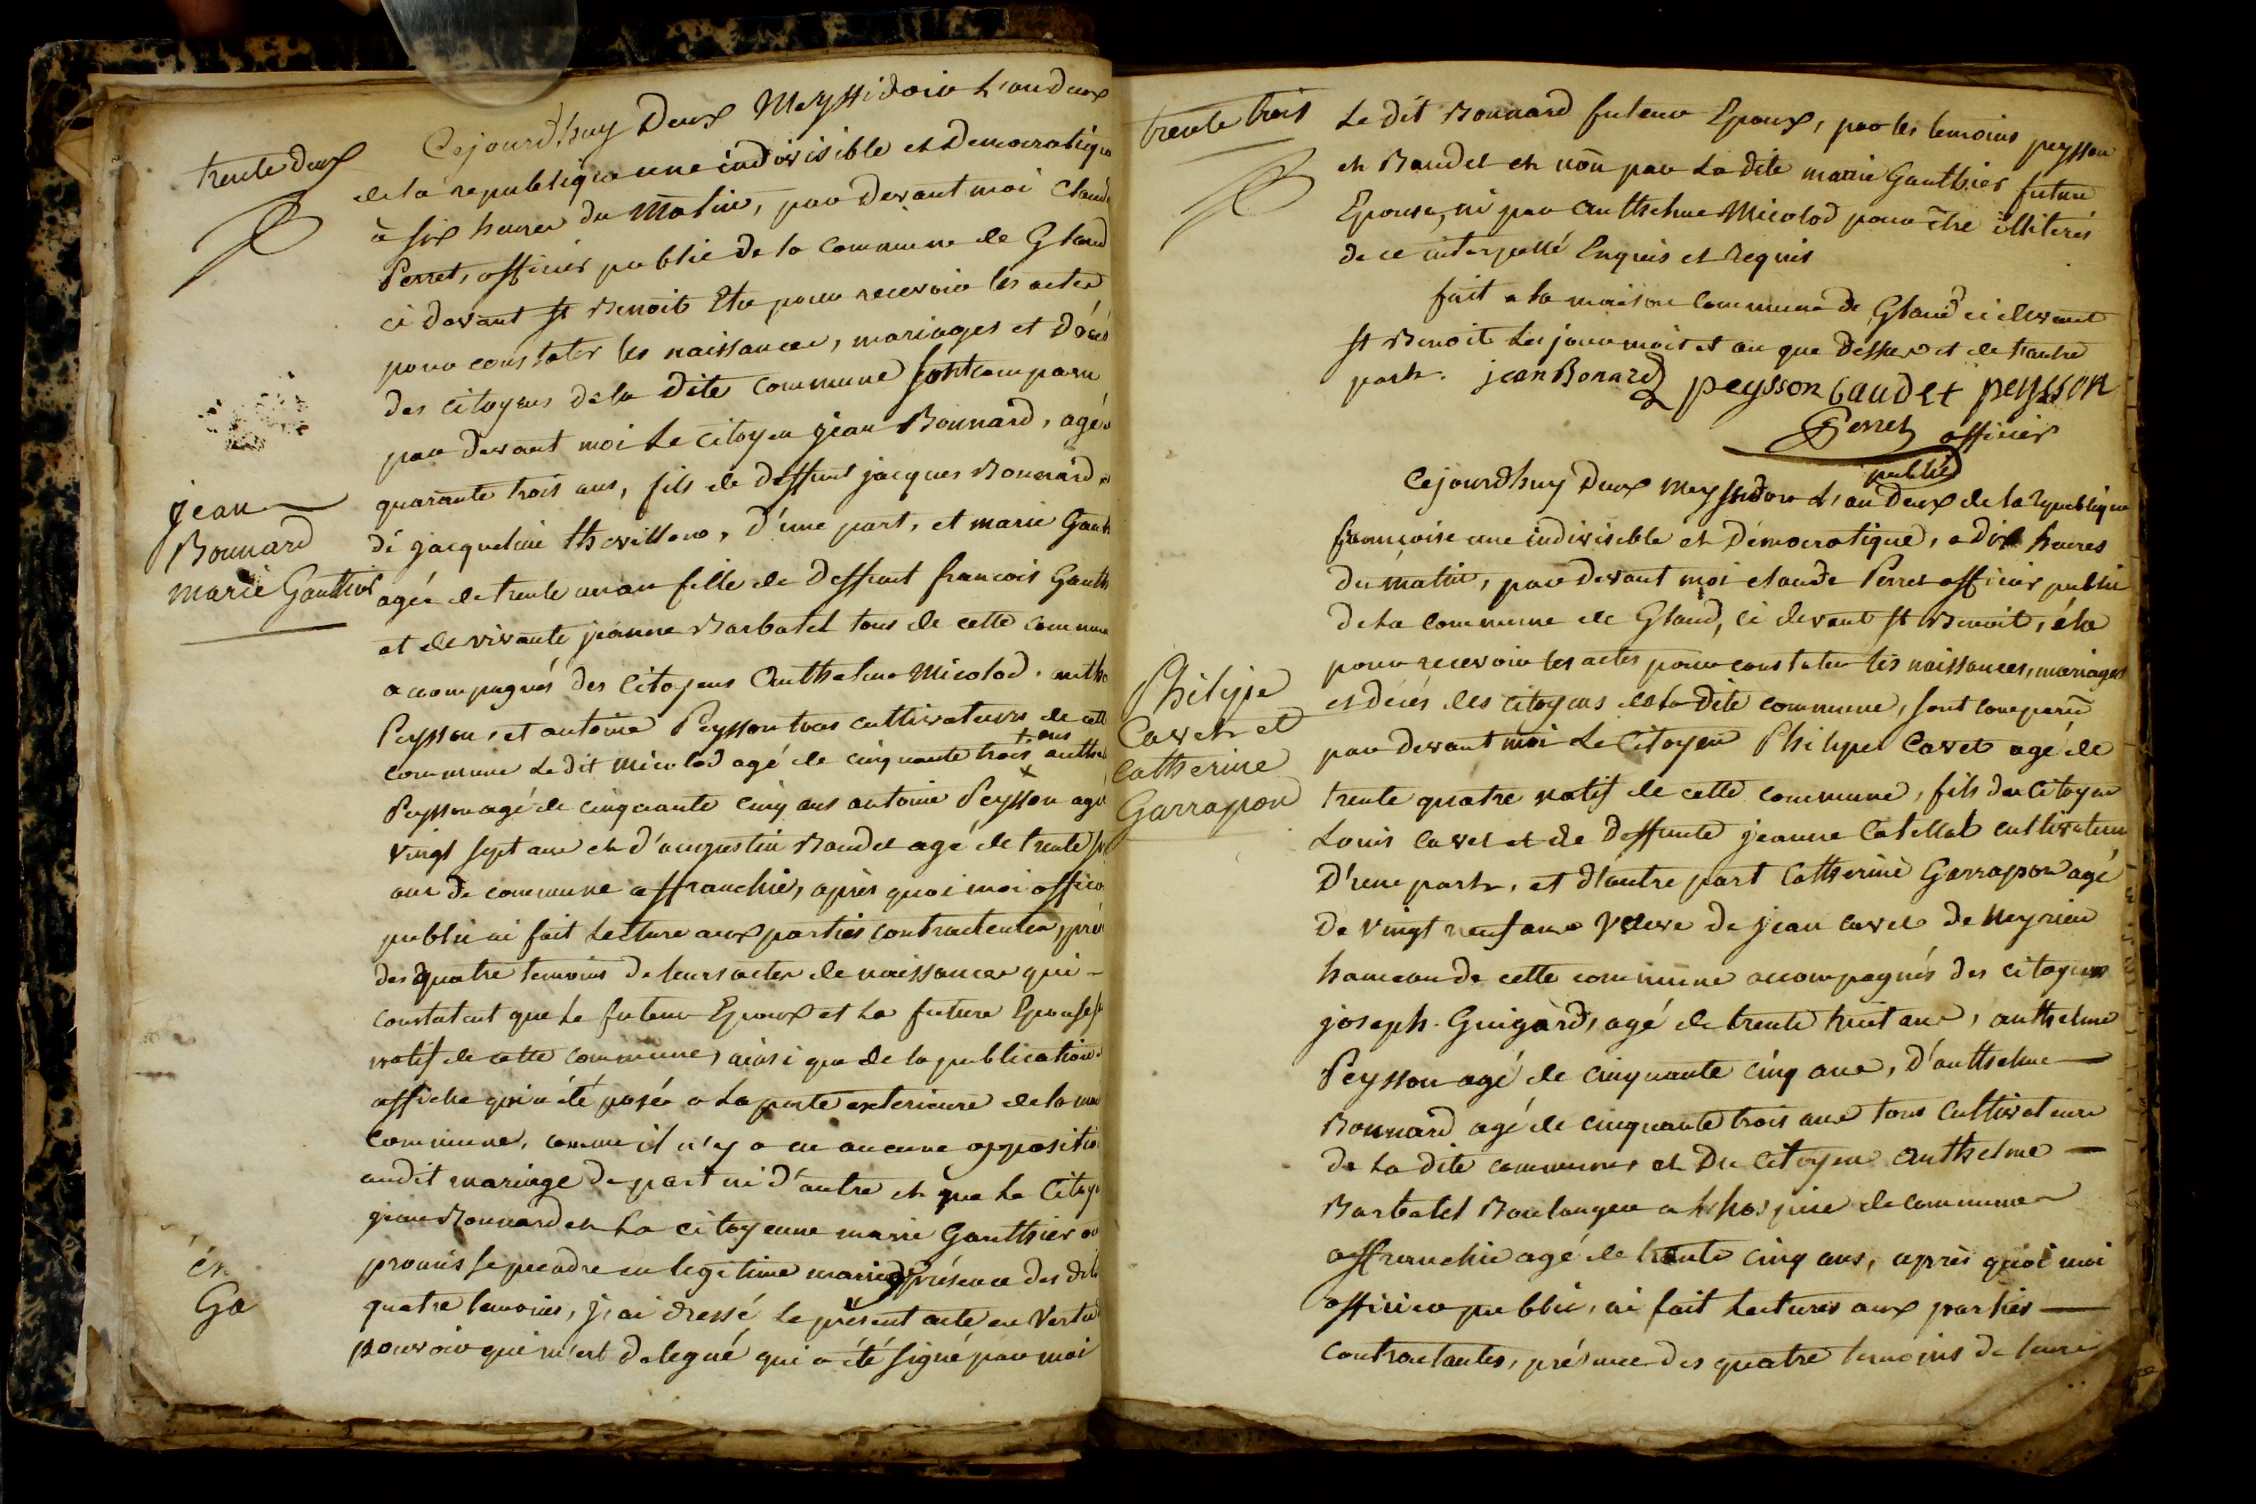 trente deux
Cejourd'huy Deux Meyssidoir L'an deux
de la republique une indivisible et Democratique
à six heures du Matin, par devant moi Claude
Perret, officier public de la commune de Gland
ci devant st Benoit Elu pour recevoir les actes
pour constater les naissances, mariages et Décés
des citoyens de la dite commune sont comparu
par devant moi Le citoyen jean Bonnard, agé
quarante trois ans, fils de deffunt jacques Bonnard
di jacqueline thevillon, d'une part, et marie Gauth
jean
Bonnard
marie Gauthier
agée de trente un an fille de deffunt francois Gauth
et de vivante jeanne Barbatel tous de cette commune
accompagnés des Citoyens Anthelme Micolod. anth
Peysson, et antoine Peysson tous cultivateurs de cette
commune Le dit Micolod agé de cinquante trois ans anthe
Peysson agé de cinquante cinq ans antoine Peysson agé
vingt sept ans et d'augustin Baudet agé de trente
ans de commune affranchie, après quoi moi officier
public ai fait Lecture aux parties contractantes, pré
des quatre temoins de leurs actes de naissances qui
constatent que Le futur Epoux et La future Epouse
natif de cette commune, ainsi que de la publication
affiche qui a été posée a La porte exterieure de la
commune, comme il n'y a eu aucune oppositio
audit mariage de part ni d'autre et que Le Citoy
jean Bonnard et La citoyenne marie Gauthier
promis se prendre en legitime mariage présence des dits
quatre temoins, j'ai dressé Le présent acte en vertu
pouvoir qui m'est delegué qui a été signé par moi
én
Ga
trente trois
Le dit Bonnard futeur Epoux, par les temoins peysson
et Baudet et non par La dite marie Gauthier future
Epouse, ni par Anthelme Micolod pour être illiterés
de ce interpellé Enquis et Requis
fait a la maison Commune de Gland ci devant
st Benoit Les jour mois et an que Dessus et de l'autre
part. jean Bonard peysson baudet peysson
Perret officier
public
Cejourd'huy Deux meyssidor L'an Deux de la Republique
francoise une indivisible et Démocratique, a dix heures
du matin, par devant moi claude Perret officier public
de la commune de Gland, ci devant st Benoit, élu
pour recevoir les actes pour constater les naissances, mariages
et décés des citoyens de la dite commune, sont comparu
Philipe
Cavet et
Catherine
Garrapon
par devant moi Le Citoyen Philipe Cavet agé de
trente quatre natif de cette commune, fils du Citoyen
Louis Cavet et de deffunte jeanne Catellat cultivateur
D'une part, et d'autre part Catherine Garrapon agé
de vingt neuf ans veuve de jean cavet de Meyrieu
hameau de cette commune accompagnés des citoyens
joseph Guigard, agé de trente huit ans, anthelme
Peysson agé de cinquante cinq ans, d'anthelme
Bonnard agé de cinquante trois ans tous Cultivateurs
de La dite commune et Du Citoyen Anthelme
Barbatel Boulanger a L'hospice de commune
affranchie agé de trente cinq ans, après quoi moi
officier public, ai fait Lectures aux parties
contractantes, présence des quatre temoins de leurs